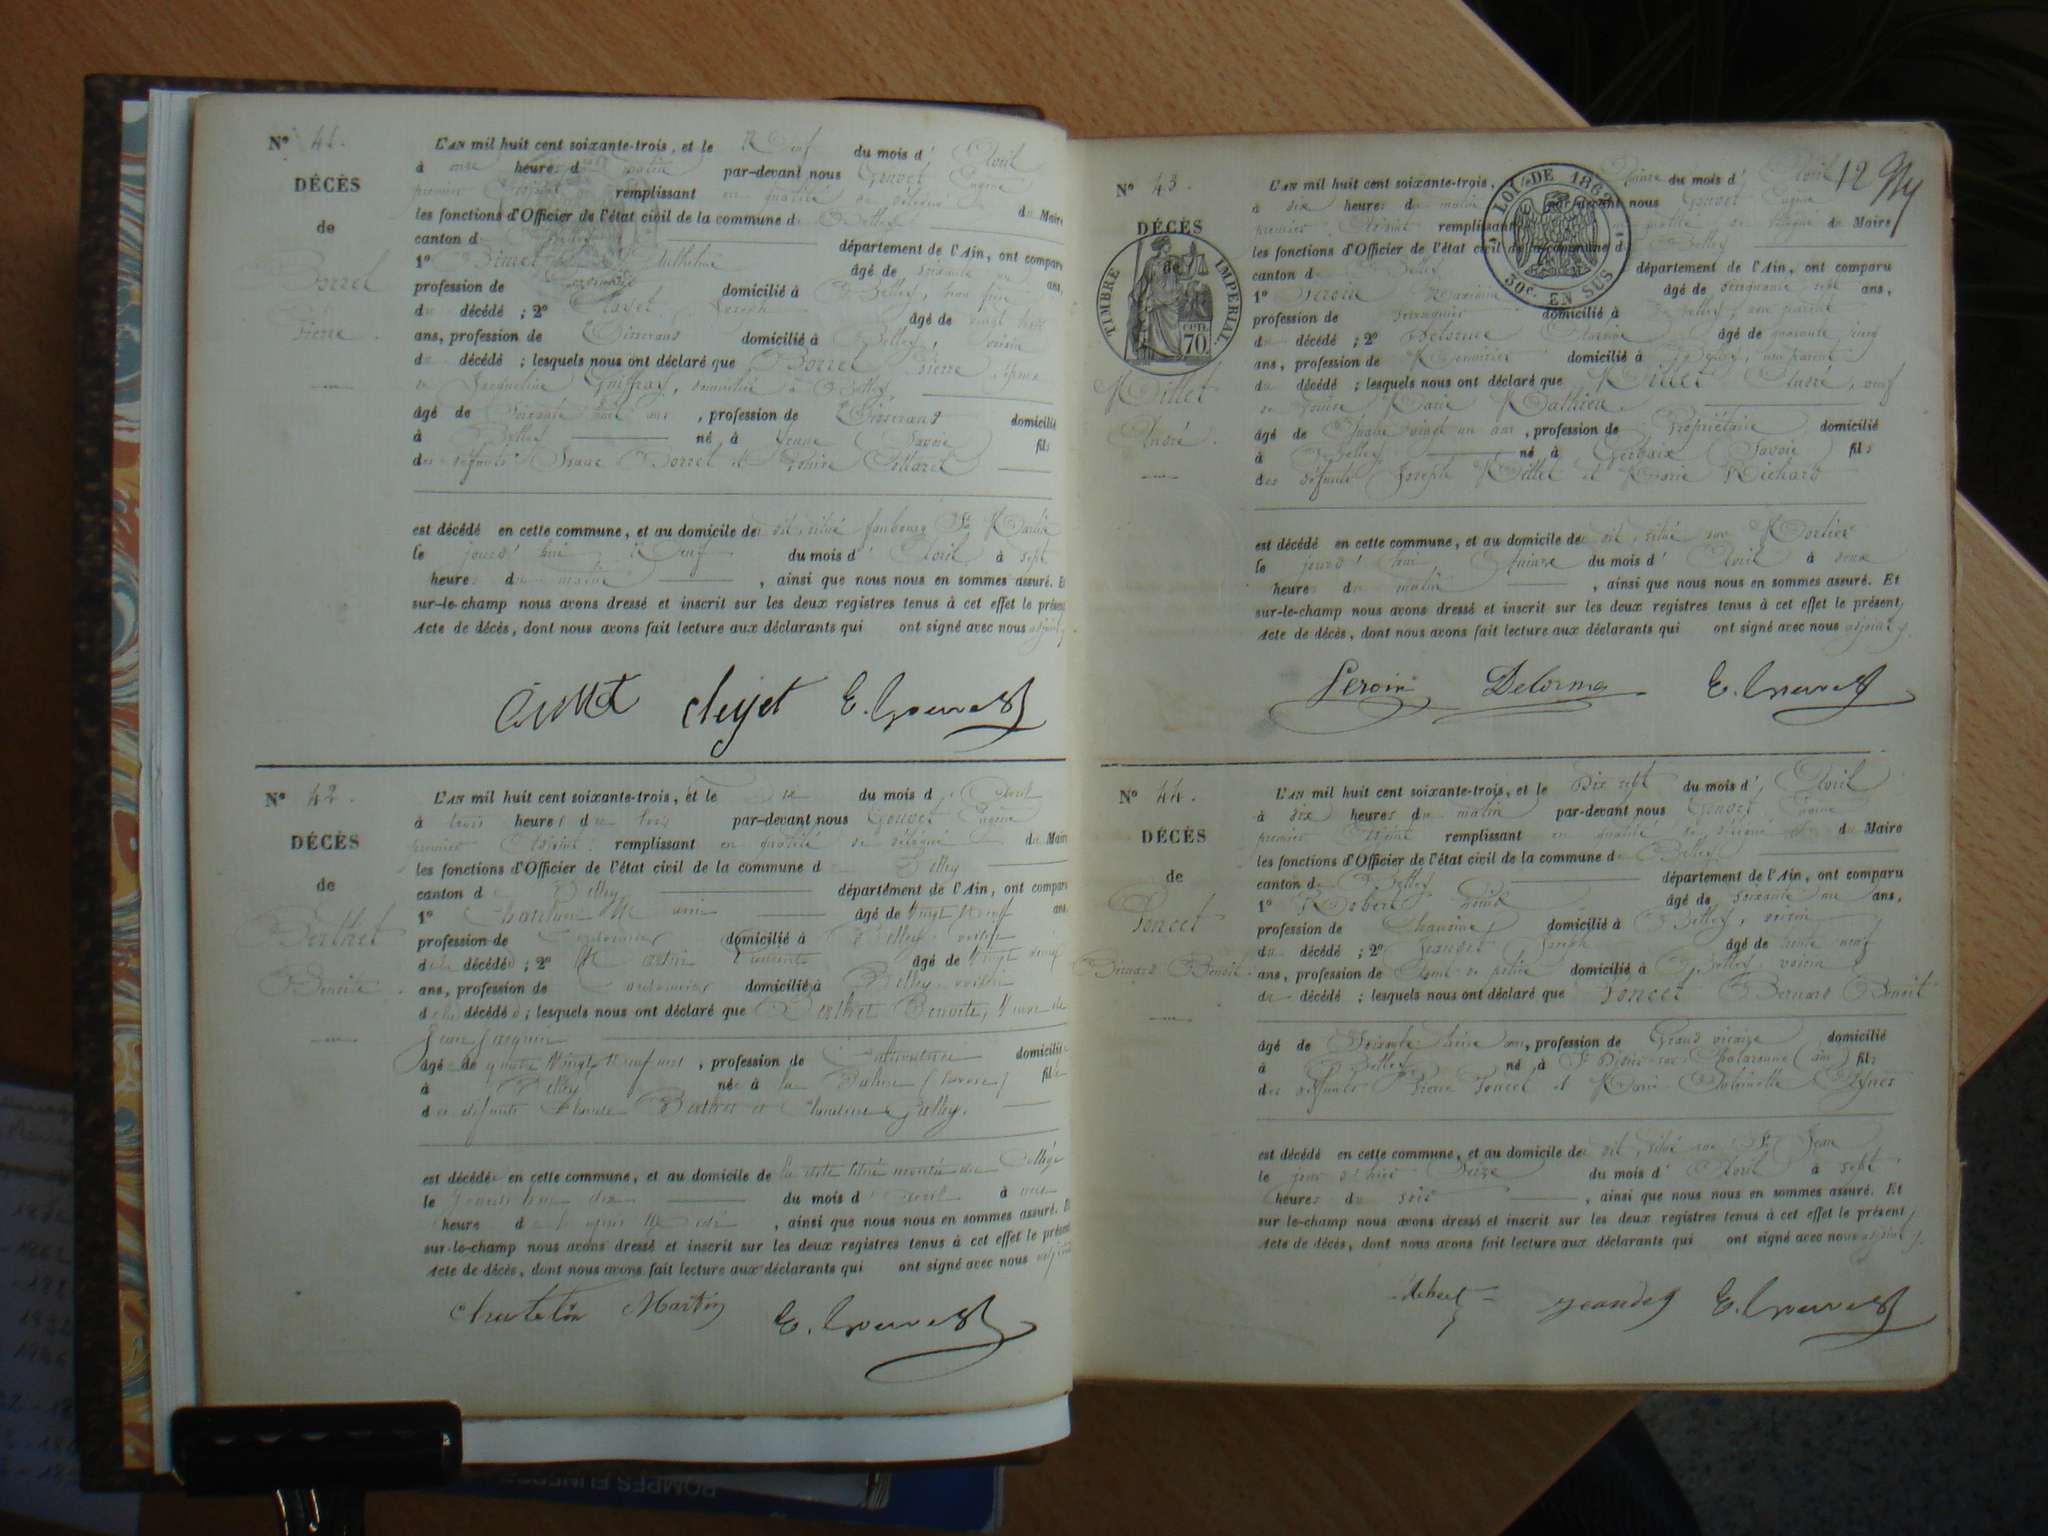 N° 41.
DÉCÈS
de
Borrel
Pierre
L'AN mil huit cent soixante-trois, et le Neuf du mois d' Avril
à onze heures du matin par-devant nous Gouvet Eugène
premier Adjoint remplissant en qualité de délégué du Maire
les fonctions d'Officier de l'état civil de la commune de Belley
canton de département de l'Ain, ont comparu
1° Anthelme âgé de soixante ans,
profession de domicilié à Belley,
du décédé ; 2° Joseph âgé de vingt huit
ans, profession de Tisserand domicilié à Belley, voisin
du décédé ; lesquels nous ont déclaré que Borrel Pierre, époux
de Jacqueline domicilié à Belley
âgé de Soixante huit ans, profession de Tisserand domicilié
à Belley né à Yenne (Savoie) fils
des défunts Isaac Borrel et Louise
est décédé en cette commune, et au domicile de dit, situé faubourg St Martin
le jourd'hui Neuf du mois d' Avril à sept
heures du matin, ainsi que nous nous en sommes assuré. Et
sur-le-champ nous avons dressé et inscrit sur les deux registres tenus à cet effet le présent
Acte de décès, dont nous avons fait lecture aux déclarants qui ont signé avec nous adjoint
E. Gouvet
N° 42.
DÉCÈS
de
Berthet
Benoite.
L'AN mil huit cent soixante-trois, et le Dix du mois d' Avril
à trois heures du soir par-devant nous Gouvet Eugène
premier Adjoint remplissant en qualité de délégué du Maire
les fonctions d'Officier de l'état civil de la commune de Belley
canton de Belley département de l'Ain, ont comparu
1° âgé de vingt neuf ans,
profession de Cordonnier domicilié à Belley voisin
de la décédée ; 2° Martin âgé de vingt
ans, profession de Cordonnier domicilié à Belley voisin
de la décédée ; lesquels nous ont déclaré que Berthet Benoite, Veuve de
Jean Jacquin
âgée de quatre vingt neuf ans, profession de domiciliée
à Belley née à la Balme (Savoie) fille
des défunts Claude Berthet et Claudine
est décédée en cette commune, et au domicile de la dite située montée du Collège
le jourd'hui dix du mois d' Avril à une
heure d après Midi, ainsi que nous nous en sommes assuré. Et
sur-le-champ nous avons dressé et inscrit sur les deux registres tenus à cet effet le présent
Acte de décès, dont nous avons fait lecture aux déclarants qui ont signé avec nous adjoint
Martin E. Gouvet
12
N° 43.
DÉCÈS
de
TIMBRE IMPÉRIAL
CEN. 70
LOI DE 1862
30c. EN SUS
Millet
André.
L'AN mil huit cent soixante-trois, Quinze du mois d' Avril
à six heures du matin par-devant nous Gouvet Eugène
premier Adjoint remplissant qualité de délégué du Maire
les fonctions d'Officier de l'état civil de la commune de Belley
canton de Belley département de l'Ain, ont comparu
1° Peroin âgé de cinquante sept ans,
profession de domicilié à Belley, non parent
du décédé ; 2° Delorme âgé de quarante
ans, profession de Menuisier domicilié à Belley, non parent
du décédé ; lesquels nous ont déclaré que Millet André, veuf
de Louise Marie Mathieu
âgé de Quatre vingt un ans, profession de Propriétaire domicilié
à Belley né à Gerbaix (Savoie) fils
des défunts Joseph Millet et Marie Richard
est décédé en cette commune, et au domicile de dit, situé
le jourd'hui Quinze du mois d' Avril à deux
heures du matin, ainsi que nous nous en sommes assuré. Et
sur-le-champ nous avons dressé et inscrit sur les deux registres tenus à cet effet le présent
Acte de décès, dont nous avons fait lecture aux déclarants qui ont signé avec nous adjoint
Peroin Delorme E. Gouvet
N° 44.
DÉCÈS
de
Poncet
Bernard Benoit.
L'AN mil huit cent soixante-trois, et le Dix sept du mois d' Avril
à dix heures du matin par-devant nous Gouvet Eugène
premier Adjoint remplissant en qualité de délégué du Maire
les fonctions d'Officier de l'état civil de la commune de Belley
canton de Belley département de l'Ain, ont comparu
1° Robert Louis âgé de soixante ans,
profession de Chanoine domicilié à Belley, voisin
du décédé ; 2° Jeandet Joseph âgé de trente neuf
ans, profession de Agent de police domicilié à Belley voisin
du décédé ; lesquels nous ont déclaré que Poncet Bernard Benoit
âgé de Soixante treize ans, profession de Grand vicaire domicilié
à Belley né à St Didier-sur-Chalaronne (Ain) fils
des défunts Pierre Poncet et Marie Antoinette
est décédé en cette commune, et au domicile de dit, situé rue St Jean
le jour d'hier Seize du mois d' Avril à sept
heures du soir, ainsi que nous nous en sommes assuré. Et
sur-le-champ nous avons dressé et inscrit sur les deux registres tenus à cet effet le présent
Acte de décès, dont nous avons fait lecture aux déclarants qui ont signé avec nous adjoint
Jeandet E. Gouvet